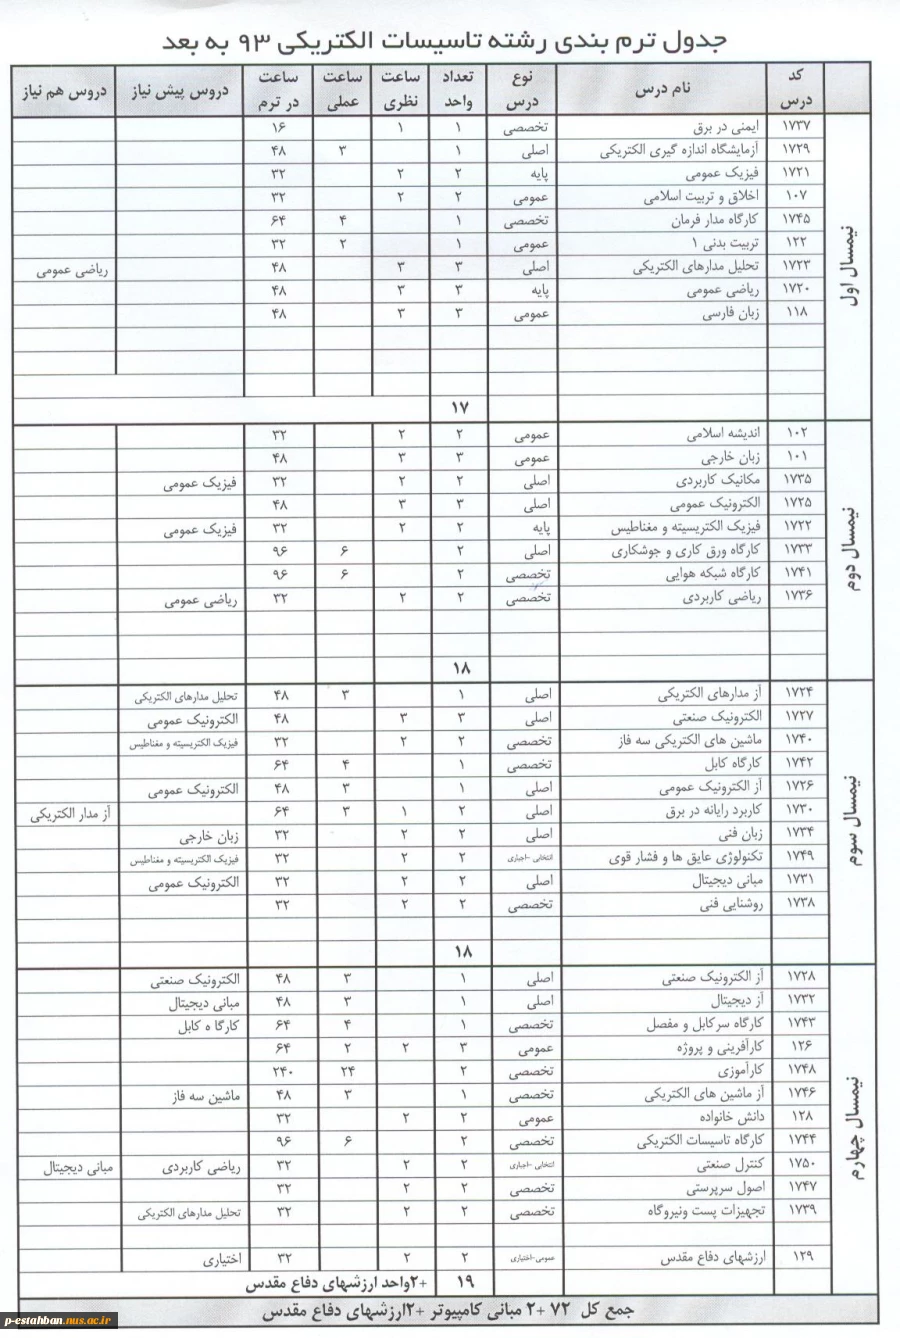 جدول ترم بندی رشته تاسیسات الکتریکی ۹۳ به بعد
کد درس نام درس نوع درس تعداد واحد ساعت نظری ساعت عملی ساعت در ترم دروس پیش نیاز دروس هم نیاز
نیمسال اول
۱۷۳۷ ایمنی در برق تخصصی ۱ ۱ ۱۶
۱۷۲۹ آزمایشگاه اندازه گیری الکتریکی اصلی ۱ ۳ ۴۸
۱۷۲۱ فیزیک عمومی پایه ۲ ۲ ۳۲
۱۰۷ اخلاق و تربیت اسلامی عمومی ۲ ۲ ۳۲
۱۷۴۵ کارگاه مدار فرمان تخصصی ۱ ۴ ۶۴
۱۲۲ تربیت بدنی ۱ عمومی ۱ ۲ ۳۲
۱۷۲۳ تحلیل مدارهای الکتریکی اصلی ۳ ۳ ۴۸ ریاضی عمومی
۱۷۲۰ ریاضی عمومی پایه ۳ ۳ ۴۸
۱۱۸ زبان فارسی عمومی ۳ ۳ ۴۸
۱۷
نیمسال دوم
۱۰۲ اندیشه اسلامی عمومی ۲ ۲ ۳۲
۱۰۱ زبان خارجی عمومی ۳ ۳ ۴۸
۱۷۳۵ مکانیک کاربردی اصلی ۲ ۲ ۳۲ فیزیک عمومی
۱۷۲۵ الکترونیک عمومی اصلی ۳ ۳ ۴۸
۱۷۲۲ فیزیک الکتریسیته و مغناطیس پایه ۲ ۲ ۳۲ فیزیک عمومی
۱۷۳۳ کارگاه ورق کاری و جوشکاری اصلی ۲ ۶ ۹۶
۱۷۴۱ کارگاه شبکه هوایی تخصصی ۲ ۶ ۹۶
۱۷۳۶ ریاضی کاربردی تخصصی ۲ ۲ ۳۲ ریاضی عمومی
۱۸
نیمسال سوم
۱۷۲۴ آز مدارهای الکتریکی اصلی ۱ ۳ ۴۸ تحلیل مدارهای الکتریکی
۱۷۲۷ الکترونیک صنعتی اصلی ۳ ۳ ۴۸ الکترونیک عمومی
۱۷۴۰ ماشین های الکتریکی سه فاز تخصصی ۲ ۲ ۳۲ فیزیک الکتریسیته و مغناطیس
۱۷۴۲ کارگاه کابل تخصصی ۱ ۴ ۶۴
۱۷۲۶ آز الکترونیک عمومی اصلی ۱ ۳ ۴۸ الکترونیک عمومی
۱۷۳۰ کاربرد رایانه در برق اصلی ۲ ۱ ۳ ۶۴ آز مدار الکتریکی
۱۷۳۴ زبان فنی اصلی ۲ ۲ ۳۲ زبان خارجی
۱۷۴۹ تکنولوژی عایق ها و فشار قوی انتخابی -اجباری ۲ ۲ ۳۲ فیزیک الکتریسیته و مغناطیس
۱۷۳۱ مبانی دیجیتال اصلی ۲ ۲ ۳۲ الکترونیک عمومی
۱۷۳۸ روشنایی فنی تخصصی ۲ ۲ ۳۲
۱۸
نیمسال چهارم
۱۷۲۸ آز الکترونیک صنعتی اصلی ۱ ۳ ۴۸ الکترونیک صنعتی
۱۷۳۲ آز دیجیتال اصلی ۱ ۳ ۴۸ مبانی دیجیتال
۱۷۴۳ کارگاه سرکابل و مفصل تخصصی ۱ ۴ ۶۴ کارگا ه کابل
۱۲۶ کارآفرینی و پروژه عمومی ۳ ۲ ۲ ۶۴
۱۷۴۸ کارآموزی تخصصی ۲ ۲۴ ۲۴۰
۱۷۴۶ آز ماشین های الکتریکی تخصصی ۱ ۳ ۴۸ ماشین سه فاز
۱۲۸ دانش خانواده عمومی ۲ ۲ ۳۲
۱۷۴۴ کارگاه تاسیسات الکتریکی تخصصی ۲ ۶ ۹۶
۱۷۵۰ کنترل صنعتی انتخابی -اجباری ۲ ۲ ۳۲ ریاضی کاربردی مبانی دیجیتال
۱۷۴۷ اصول سرپرستی تخصصی ۲ ۲ ۳۲
۱۷۳۹ تجهیزات پست ونیروگاه تخصصی ۲ ۲ ۳۲ تحلیل مدارهای الکتریکی
۱۲۹ ارزشهای دفاع مقدس عمومی-اختیاری ۲ ۲ ۳۲ اختیاری
۱۹ +۲واحد ارزشهای دفاع مقدس
جمع کل ۷۲ +۲ مبانی کامپیوتر +۲ارزشهای دفاع مقدس
p-estahban.nus.ac.ir